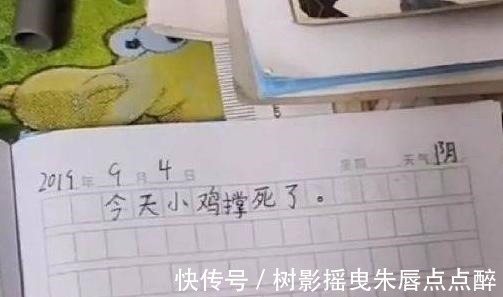 2019年 9月 4日 星期 天气 阴
今天小鸡撑死了。
快传号 / 树影摇曳朱唇点点醉